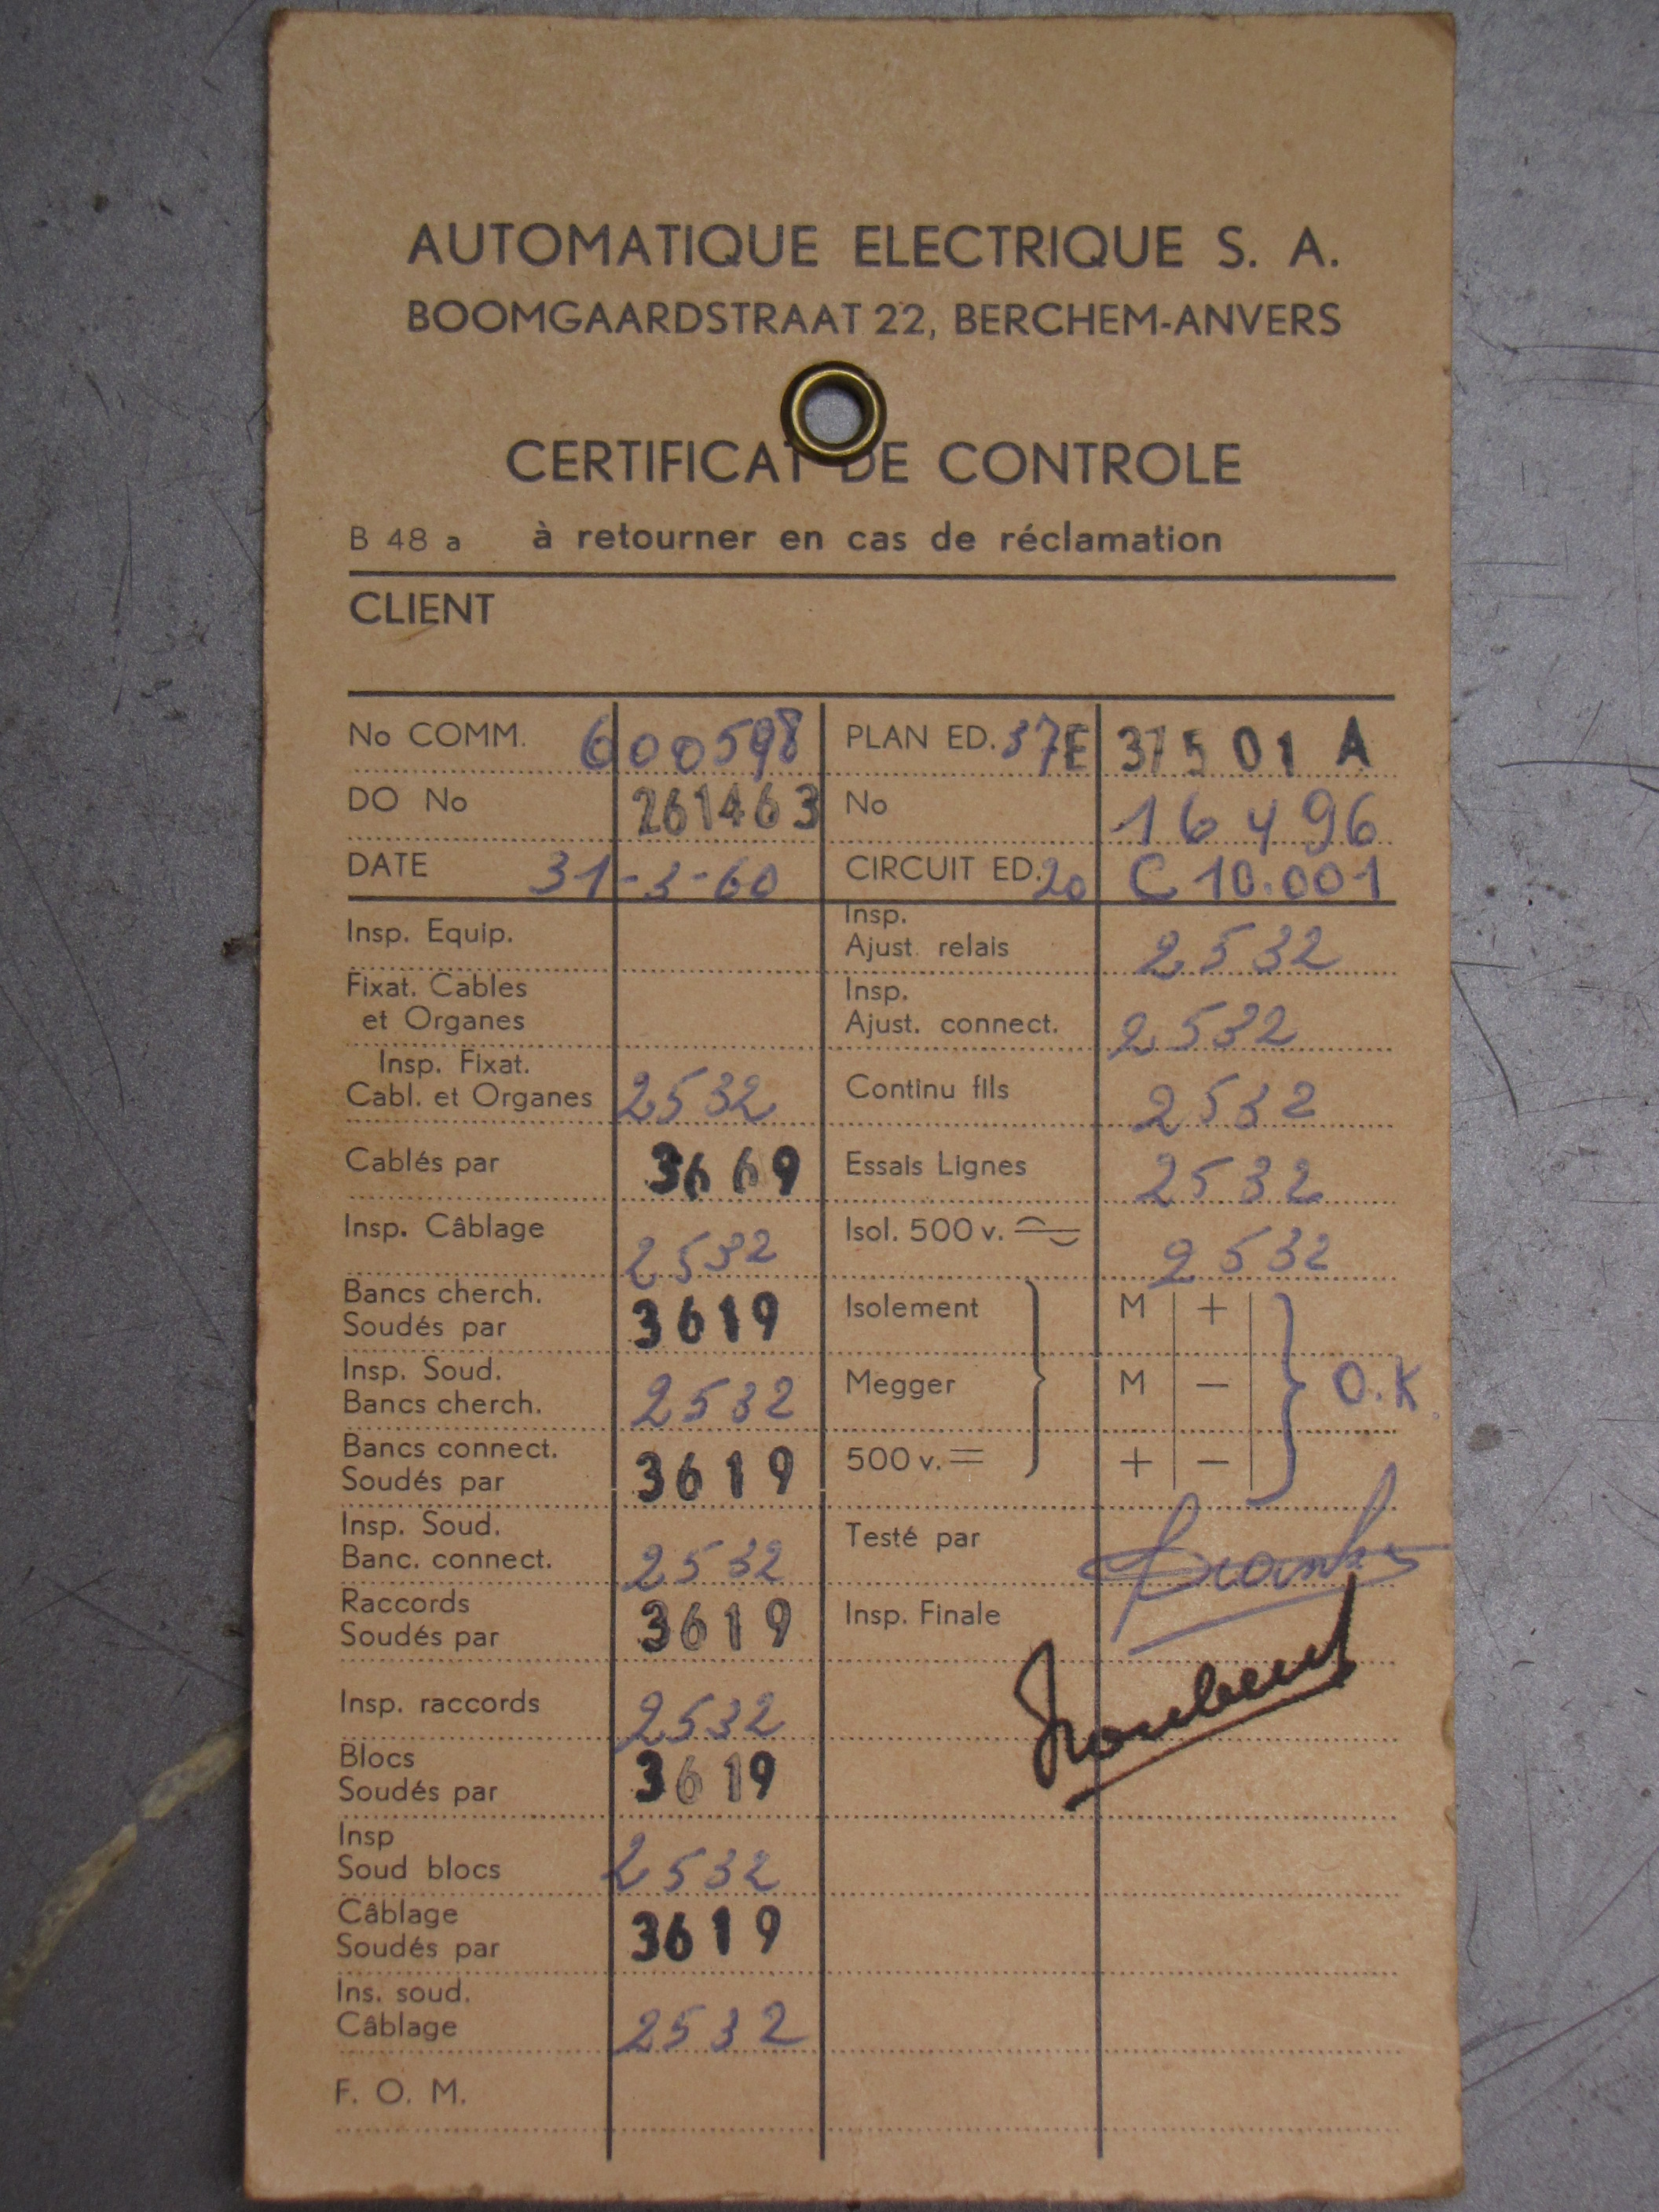 AUTOMATIQUE ELECTRIQUE S. A.
BOOMGAARDSTRAAT 22, BERCHEM-ANVERS
CERTIFICAT DE CONTROLE
B 48 a à retourner en cas de réclamation
CLIENT
No COMM. 600598 PLAN ED. 37E 37501 A
DO No 261463 No 16496
DATE 31-3-60 CIRCUIT ED. 20 C 10.001
Insp. Equip.
Insp.
Ajust. relais 2532
Fixat. Cables
et Organes
Insp.
Ajust. connect. 2532
Insp. Fixat.
Cabl. et Organes 2532
Continu fils 2532
Cablés par 3669 Essais Lignes 2532
Insp. Câblage 2532 Isol. 500 v. 2532
Bancs cherch.
Soudés par 3619
Isolement M +
Insp. Soud.
Bancs cherch. 2532
Megger M − O.K.
Bancs connect.
Soudés par 3619
500 v. = + −
Insp. Soud.
Banc. connect. 2532
Testé par
Raccords
Soudés par 3619
Insp. Finale
Insp. raccords 2532
Blocs
Soudés par 3619
Insp
Soud blocs 2532
Câblage
Soudés par 3619
Ins. soud.
Câblage 2532
F. O. M.